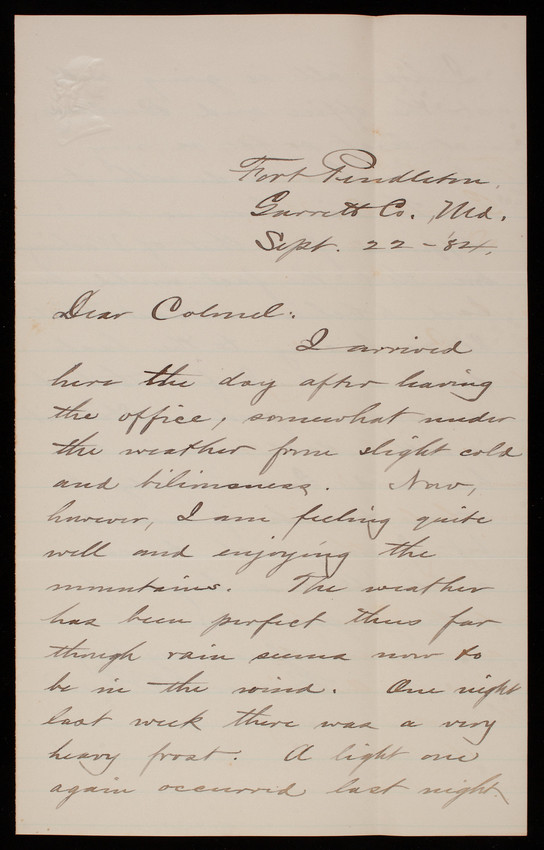 Fort Pendleton,
Garrett Co., Md.
Sept. 22 - '84.
Dear Colonel:
I arrived
here the day after leaving
the office, somewhat under
the weather from slight cold
and biliousness. Now,
however, I am feeling quite
well and enjoying the
mountains. The weather
has been perfect thus far
though rain seems now to
be in the wind. One night
last week there was a very
heavy frost. A light one
again occurred last night.